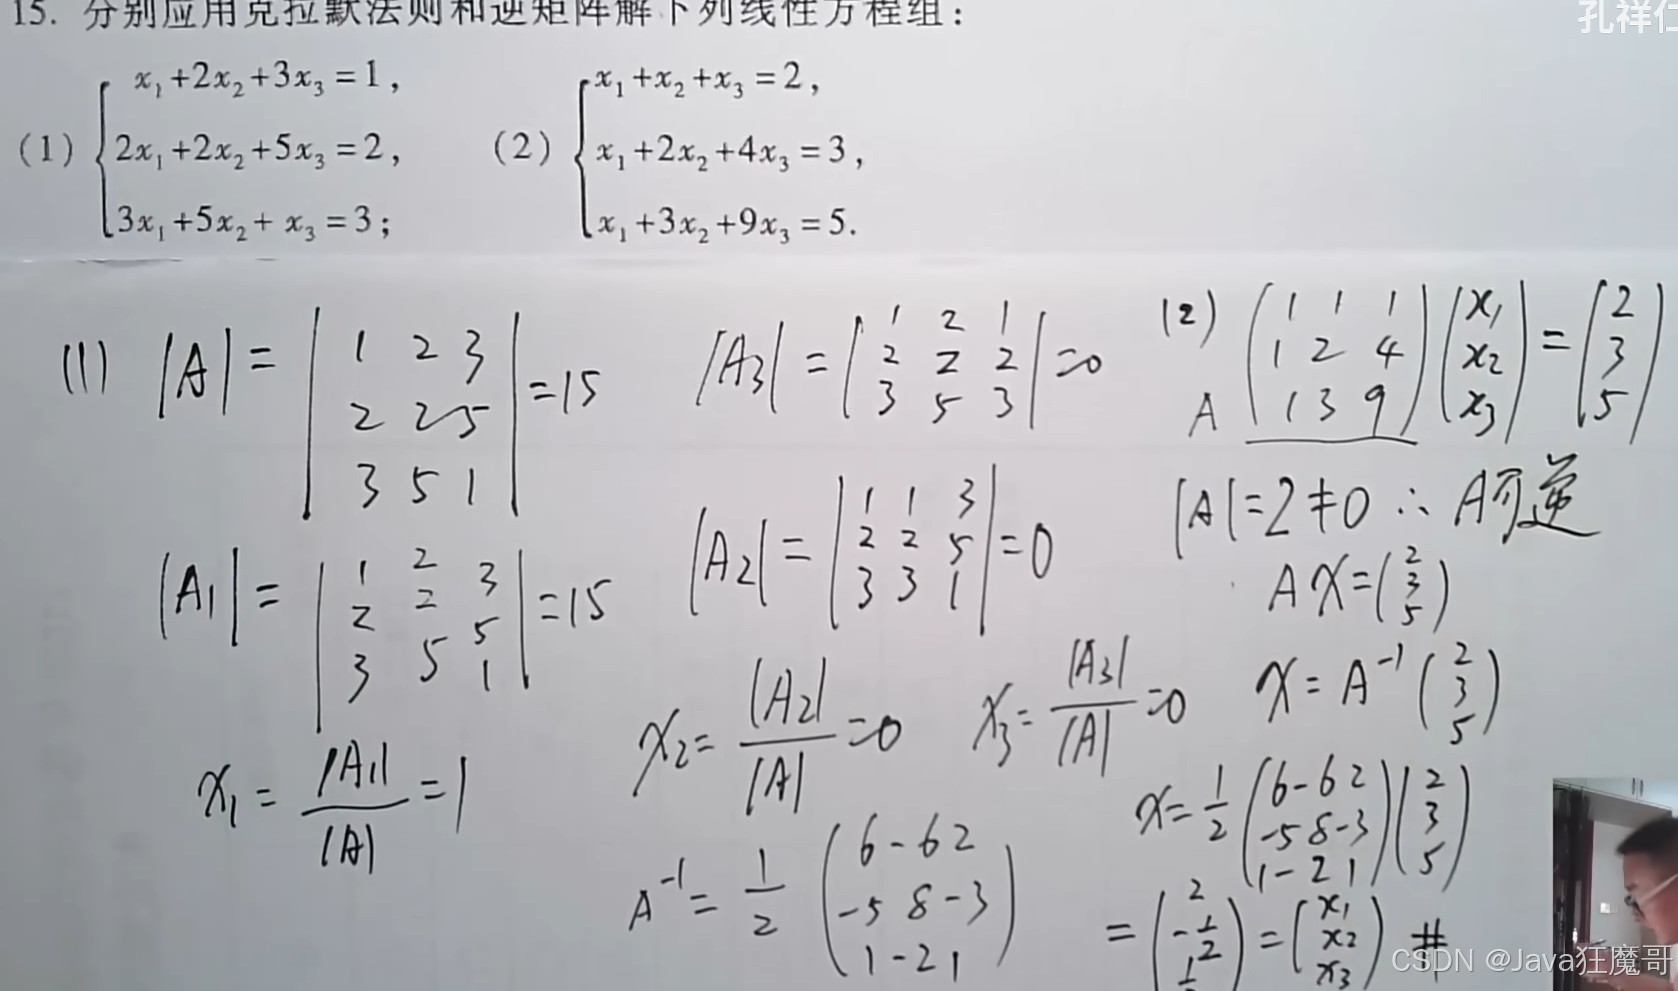 15. 分别应用克拉默法则和逆矩阵解下列线性方程组:
孔祥仁
(1) { x₁+2x₂+3x₃=1,
2x₁+2x₂+5x₃=2,
3x₁+5x₂+x₃=3;
(2) { x₁+x₂+x₃=2,
x₁+2x₂+4x₃=3,
x₁+3x₂+9x₃=5.
(1) |A| = | 1 2 3
2 2 5
3 5 1 | =15
|A₁| = | 1 2 3
2 2 5
3 5 1 | =15
x₁ = |A₁| / |A| = 1
|A₃| = | 1 2 1
2 2 2
3 5 3 | =0
|A₂| = | 1 1 3
2 2 5
3 3 1 | =0
x₂= |A₂| / |A| =0
x₃= |A₃| / |A| =0
A⁻¹ = 1/2 ( 6 -6 2
-5 8 -3
1 -2 1 )
(2) A ( 1 1 1
1 2 4
1 3 9 ) ( x₁
x₂
x₃ ) = ( 2
3
5 )
|A|=2≠0 ∴ A可逆
AX= ( 2
3
5 )
X= A⁻¹ ( 2
3
5 )
X= 1/2 ( 6 -6 2
-5 8 -3
1 -2 1 ) ( 2
3
5 )
= ( 2
-1/2
1/2 ) = ( x₁
x₂
x₃ ) #
CSDN @Java狂魔哥